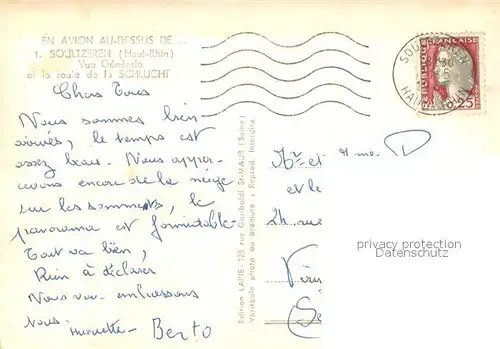 EN AVION AU-DESSUS DE ...
1. SOULTZEREN (Haut-Rhin)
Vue Générale
et la route de la SCHLUCHT
Chers Tous
Nous sommes bien
arrivés, le temps est
assez beau. Nous apper-
cevons encore de la neige
sur les sommets, le
panorama est formidable-
Tout va bien,
Rien à déclarer
Nous vous embrassons
tous.
Huguette - Berto
Edition LAPIE - 125 rue Garibaldi St-MAUR (Seine)
Véritable photo au bromure - Reprod. Interdite.
SOULTZEREN
HAUT-RHIN
REPUBLIQUE FRANCAISE
0,25
Mr et Mme D
et le
24 rue
privacy protection
Dalmsammler.com